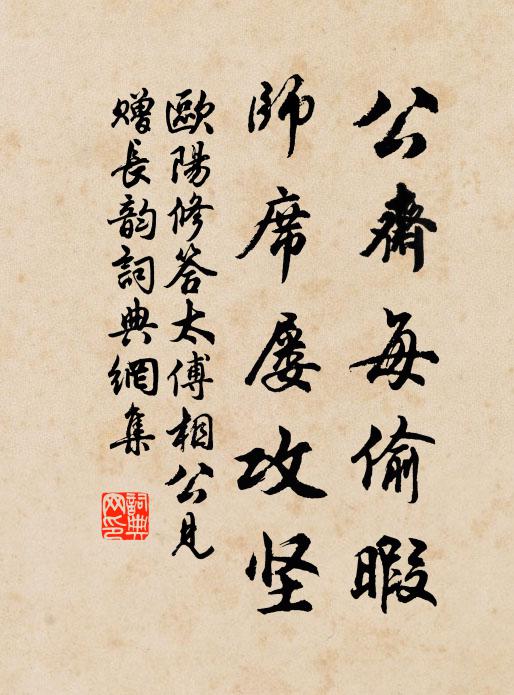 公齋每偷暇
師席屡攻坚
歐陽修答太傅相公見
贈長韵詞典網集
詞典网印